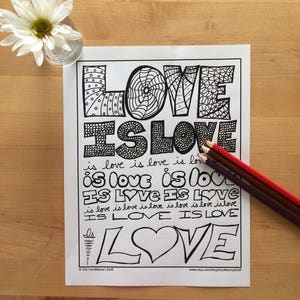 LOVE
IS LOVE
is love is love is lo
is love is love
IS LOVE IS LOVE
is love is love is love is love is love
IS LOVE IS LOVE
Is
LOVE